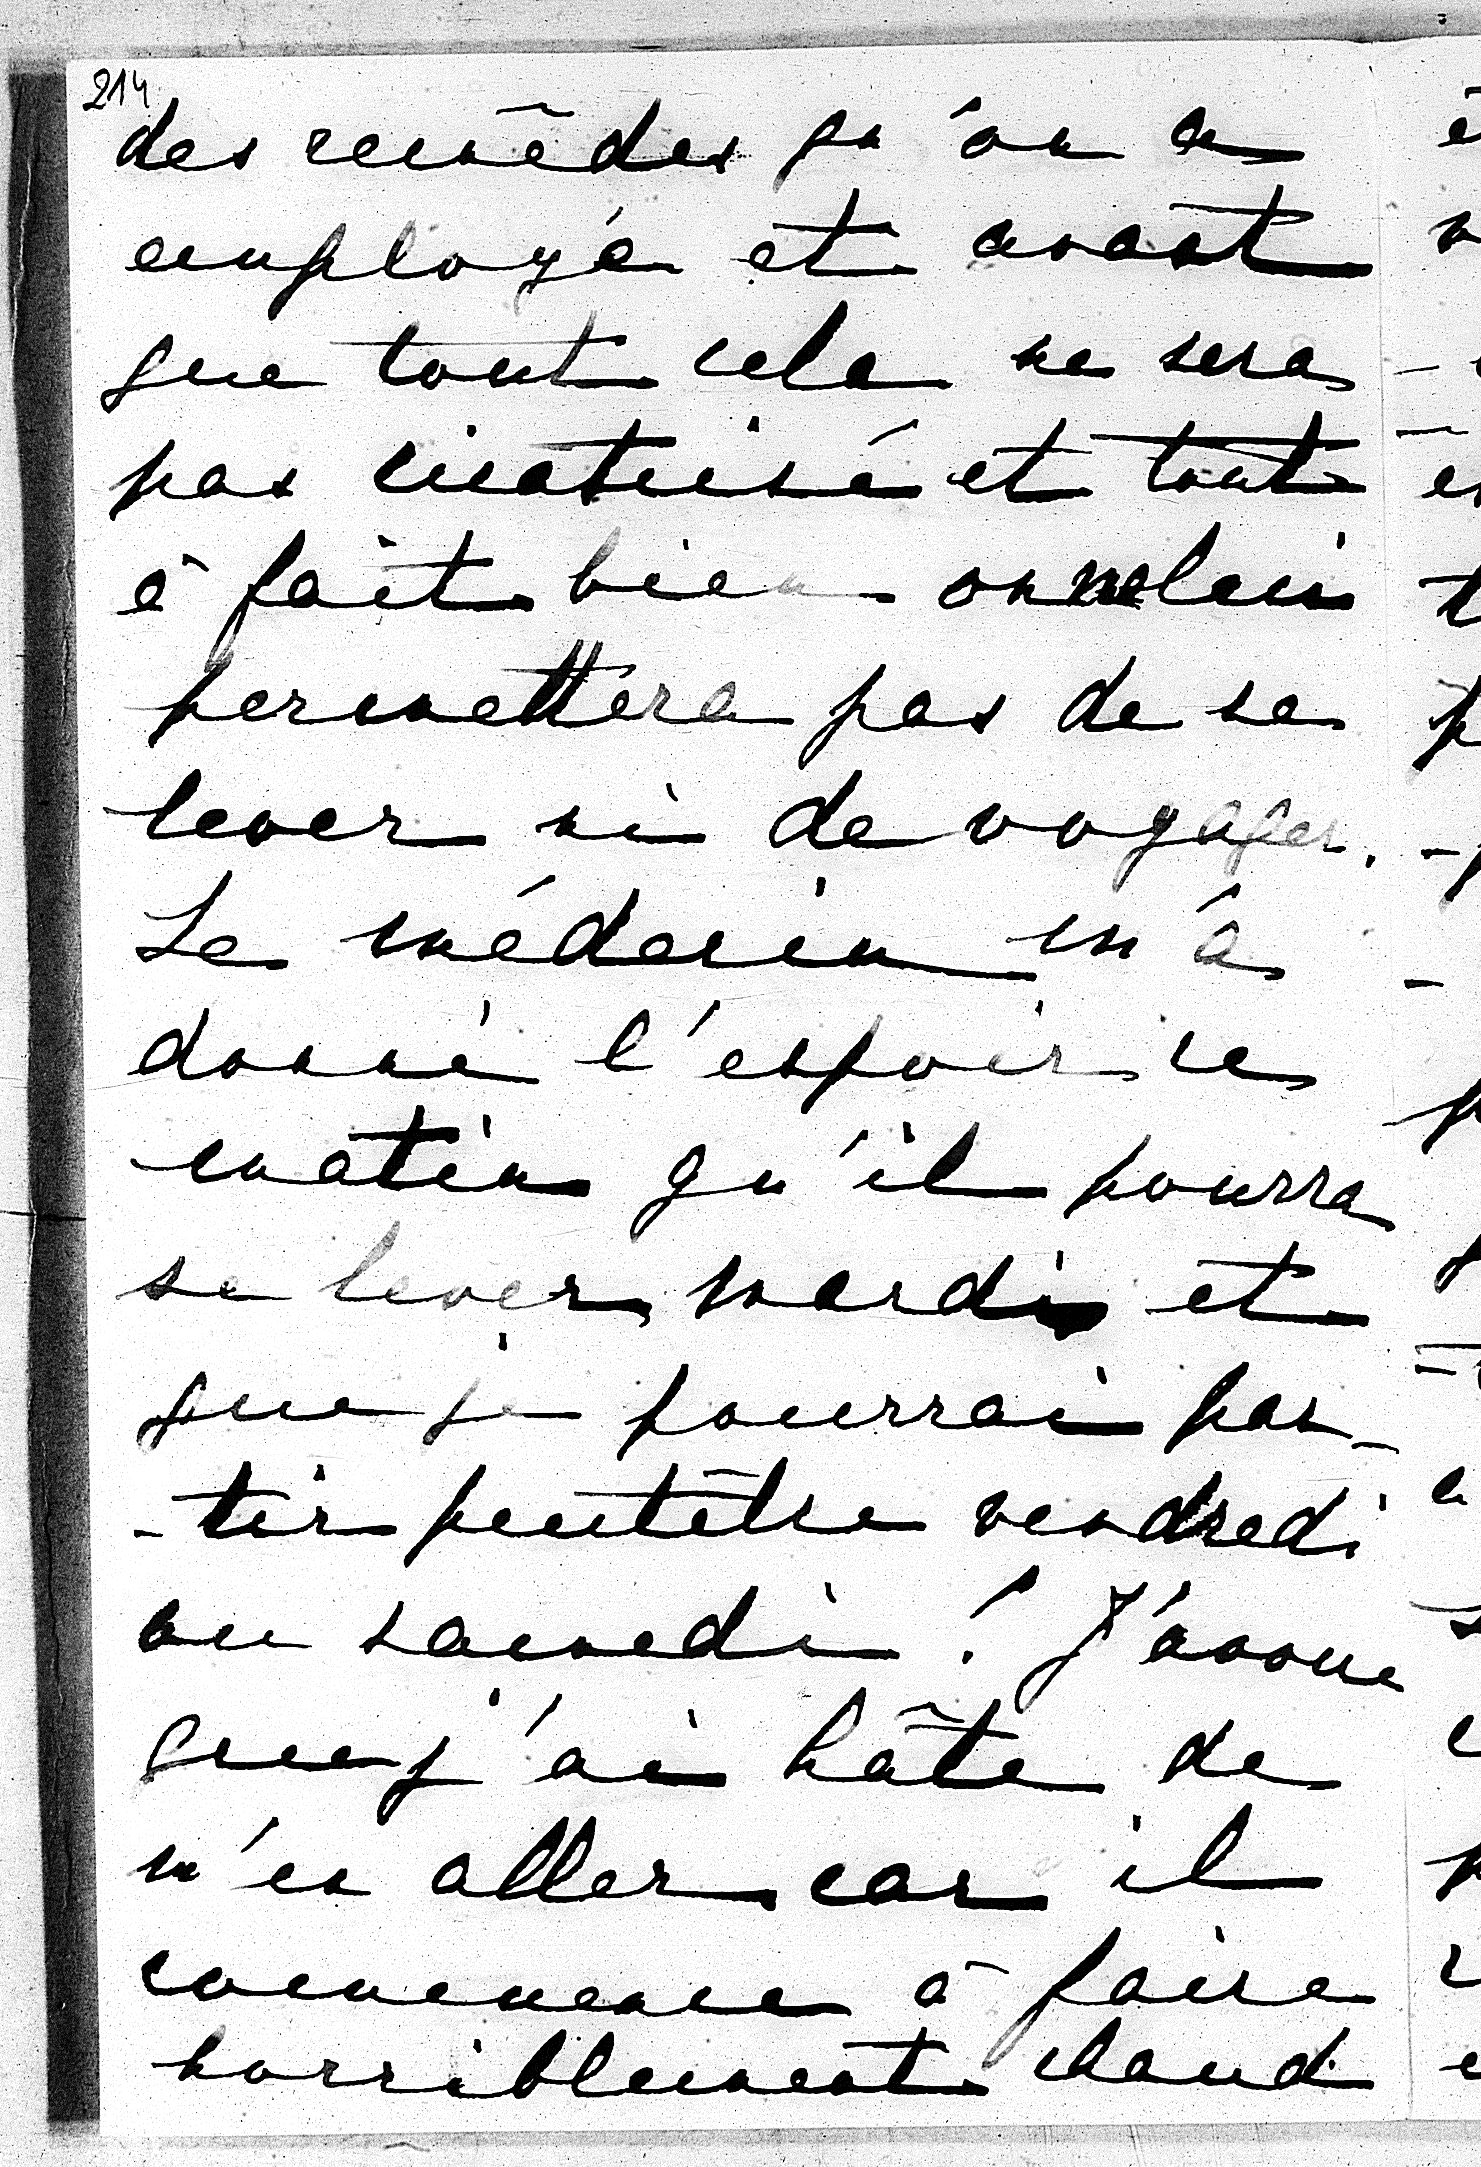 214
des remèdes qu'on a
employé et avant
que tout cela ne sera
pas cicatrisé et tout
à fait bien on ne lui
permettera pas de se
lever ni de voyager.
Le médecin m'a
donné l'espoir ce
matin qu'il pourra
se lever mardi et
que je pourrai par-
-tir peutêtre vendredi
ou samedi! J'avoue
que j'ai hâte de
m'en aller car il
commence à faire
horriblement chaud